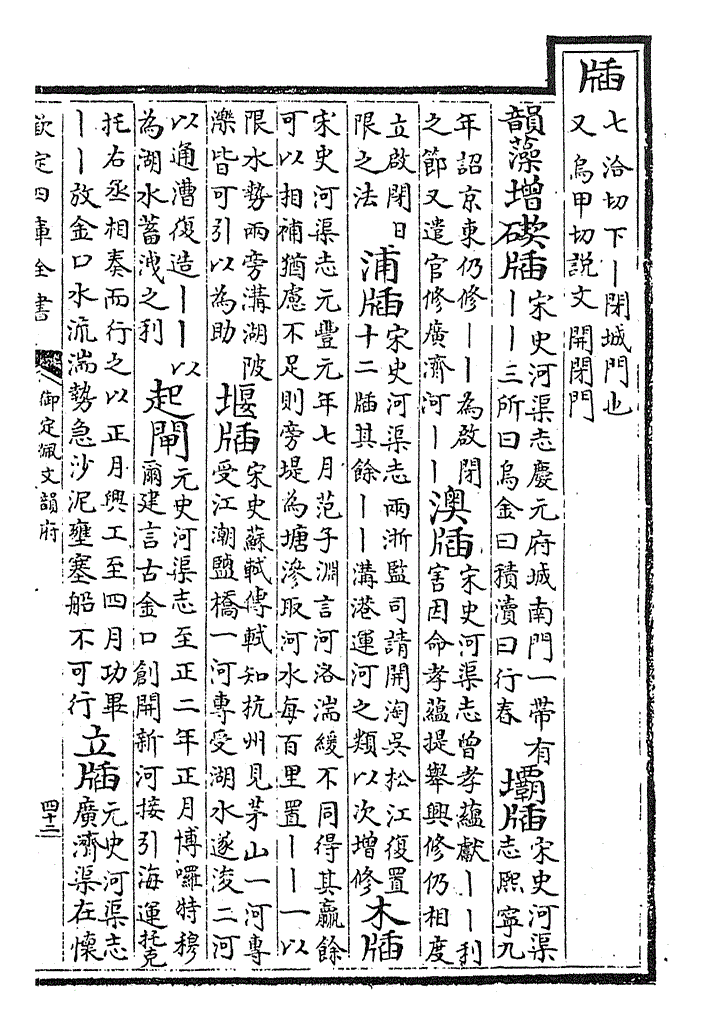 牐
七洽切下丨閉城門也
又烏甲切説文開閉門
韻藻增碶牐
宋史河渠志慶元府城南門一帶有
丨丨三所曰烏金曰積瀆曰行春
壩牐
宋史河渠
志熙寧九
年詔京東仍修丨丨為啟閉
之節又遣官修廣濟河丨丨
澳牐
宋史河渠志曾孝蘊獻丨丨利
害因命孝蘊提舉興修仍相度
立啟閉日
限之法
浦牐
宋史河渠志兩浙監司請開淘吳松江復置
十二牐其餘丨丨溝港運河之類以次增修
木牐
宋史河渠志元豐元年七月范子淵言河洛湍緩不同得其贏餘
可以相補猶慮不足則旁堤為塘滲取河水每百里置丨丨一以
限水勢兩旁溝湖陂
濼皆可引以為助
堰牐
宋史蘇軾傳軾知杭州見茅山一河專
受江潮鹽橋一河專受湖水遂浚二河
以通漕復造丨丨以
為湖水蓄洩之利
起閘
元史河渠志至正二年正月博囉特穆
爾建言古金口創開新河接引海運托克
托右丞相奏而行之以正月興工至四月功畢
丨丨放金口水流湍勢急沙泥壅塞船不可行
立牐
元史河渠志
廣濟渠在懷
欽定四庫全書
御定佩文韻府
四十二